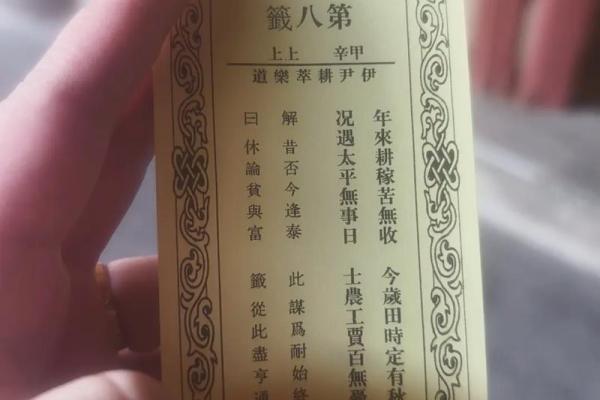 第八籤
甲辛 上上
伊尹耕萃樂道
年來耕稼苦無收 今歲田時定有秋
况遇太平無事日 士農工賈百無憂
解 昔否今逢泰 此 謀爲耐始終
曰 休論貧與富 籤 從此盡亨通